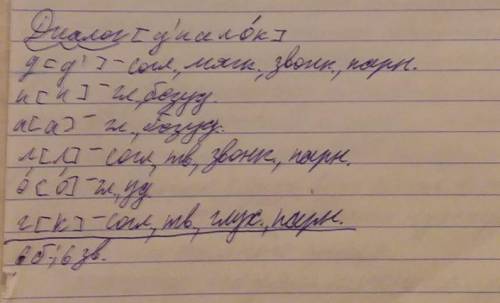 Диалог [д'иало́к]
д [д'] - согл., мягк., звонк., парн.
и [и] - гл., безуд.
а [а] - гл., безуд.
л [л] - согл, тв, звонк., парн.
о́ [о́] - гл, уд
г [к] - согл, тв, глух., парн.
6 б; 6 зв.